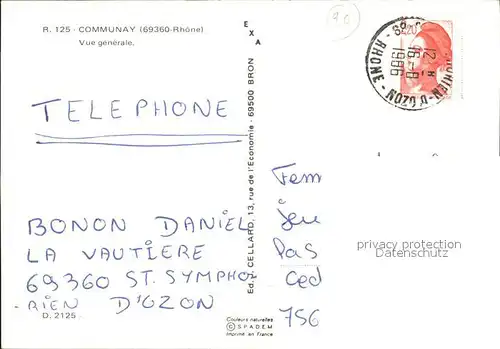 R. 125 - COMMUNAY (69360-Rhône)
Vue générale.
EXA
90
2,20
12 H
16 -8
1986
RHONE - D'OZON
TELEPHONE
Ed. J. CELLARD, 13, rue de l'Economie - 69500 BRON
BONON DANIEL
LA VAUTIERE
69360 ST. SYMPHO
-RIEN D'OZON
D. 2125
Couleurs naturelles
© SPADEM
Imprimé en France
Fem
jeu
Pas
Ced
756
privacy protection
Datenschutz